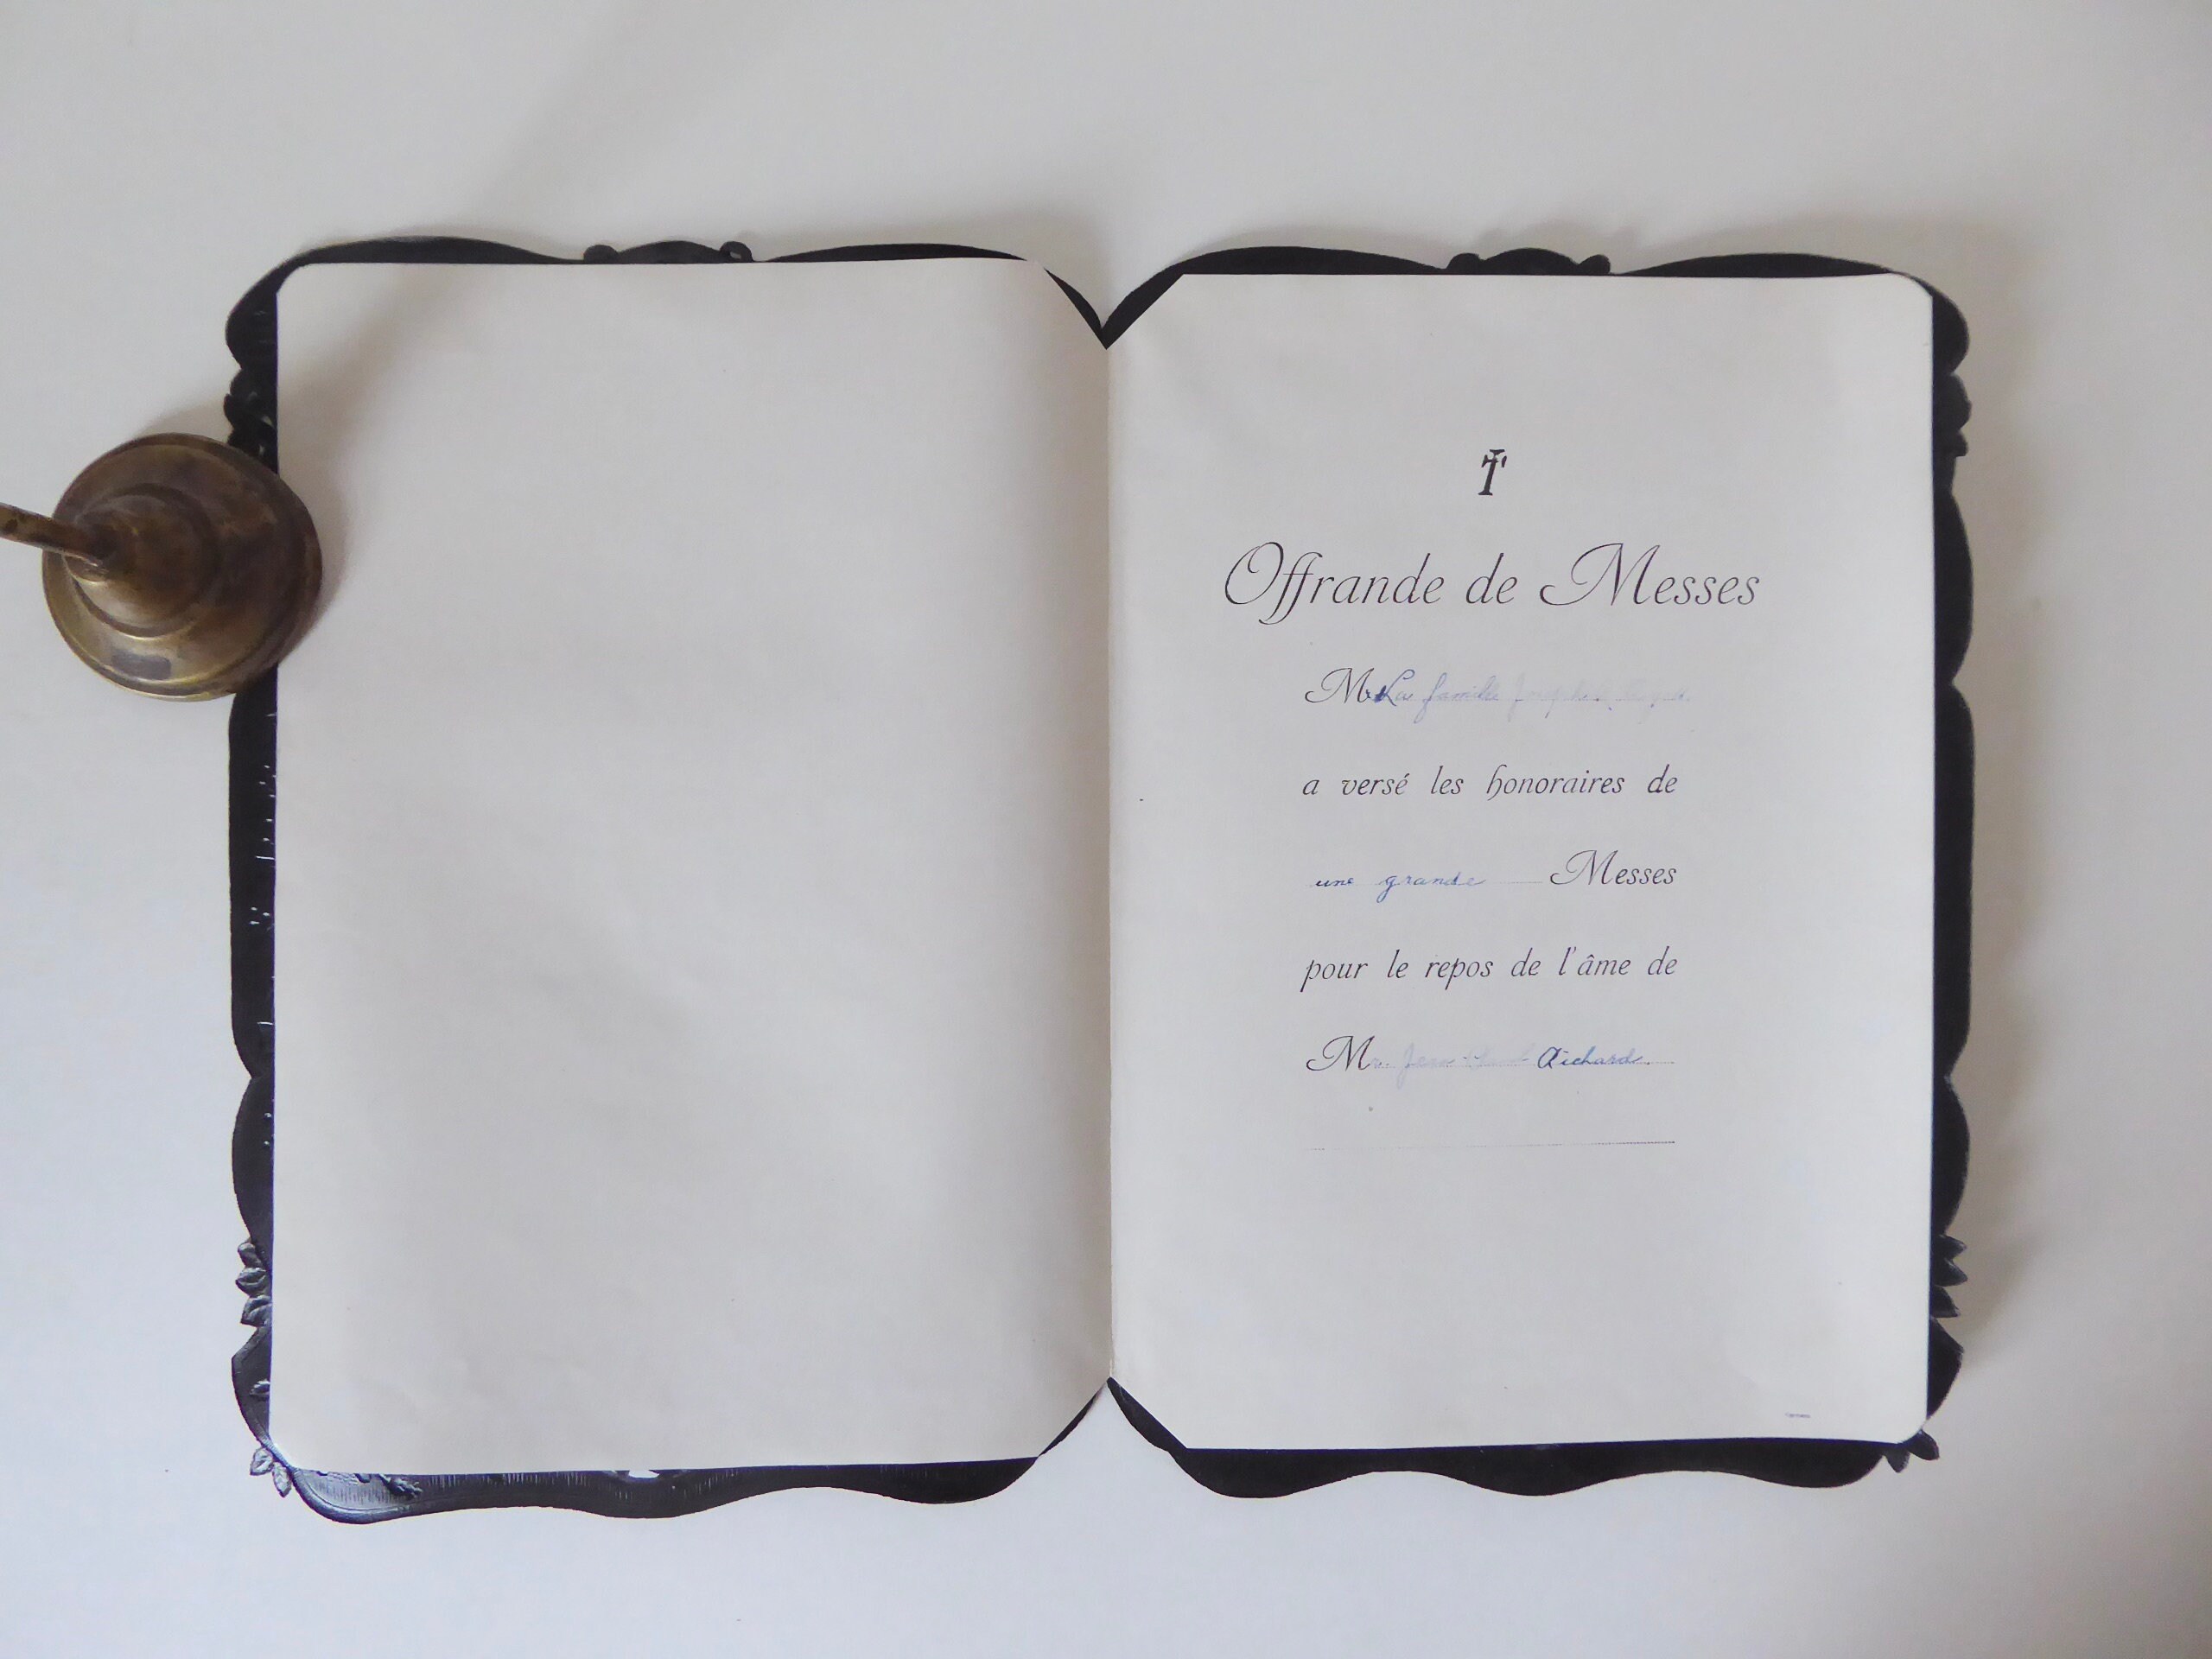 Offrande de Messes
M La famille
a versé les honoraires de
une grande Messes
pour le repos de l'âme de
Mr. Jean Richard